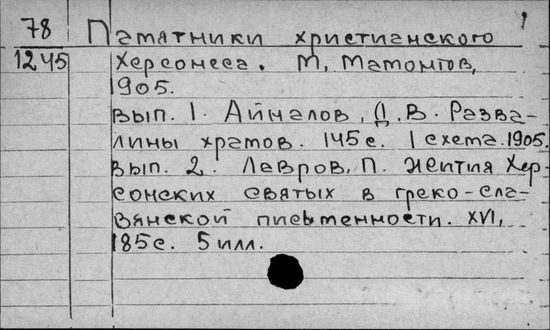 78 Памятники христианского
1245 Херсонеса. М, Мамонтов,
1905.
вып. 1. Айналов, Д. В. Разва-
лины храмов. 145 с. 1 схема. 1905.
вып. 2. Лавров, П. Жития Хер-
сонских святых в греко-сла-
вянской письменности. XVI,
185с. 5 илл.